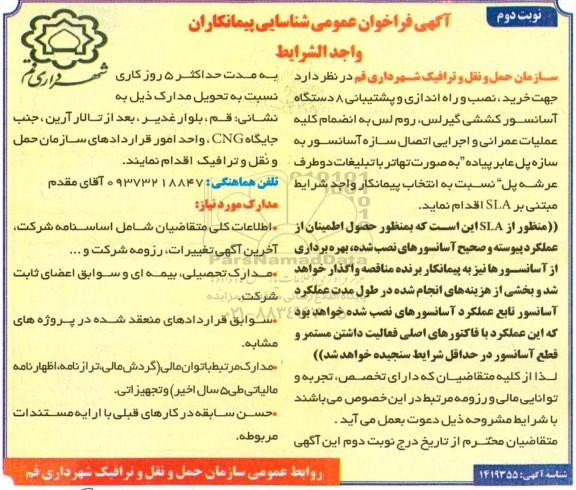 نوبت دوم
آگهی فراخوان عمومی شناسایی پیمانکاران
واجد الشرایط
شهرداری قم
سازمان حمل و نقل و ترافیک شهرداری قم در نظر دارد
جهت خرید، نصب و راه اندازی و پشتیبانی ۸ دستگاه
آسانسور کششی گیرلس، روم لس به انضمام کلیه
عملیات عمرانی و اجرایی اتصال سازه آسانسور به
سازه پل عابر پیاده "به صورت تهاتر با تبلیغات دو طرف
عرشه پل" نسبت به انتخاب پیمانکار واجد شرایط
مبتنی بر SLA اقدام نماید.
((منظور از SLA این است که بمنظور حصول اطمینان از
عملکرد پیوسته و صحیح آسانسورهای نصب شده، بهره برداری
از آسانسورها نیز به پیمانکار برنده مناقصه واگذار خواهد
شد و بخشی از هزینه‌های انجام شده در طول مدت عملکرد
آسانسور تابع عملکرد آسانسورهای نصب شده خواهد بود
که این عملکرد با فاکتورهای اصلی فعالیت داشتن مستمر و
قطع آسانسور در حداقل شرایط سنجیده خواهد شد))
لذا از کلیه متقاضیان که دارای تخصص، تجربه و
توانایی مالی و رزومه مرتبط در این خصوص می باشند
با شرایط مشروحه ذیل دعوت بعمل می آید.
متقاضیان محترم از تاریخ درج نوبت دوم این آگهی
به مدت حداکثر ۵ روز کاری
نسبت به تحویل مدارک ذیل به
نشانی: قم، بلوار غدیر، بعد از تالار آرین، جنب
جایگاه CNG، واحد امور قراردادهای سازمان حمل
و نقل و ترافیک اقدام نمایند.
تلفن هماهنگی: ۰۹۳۷۳۲۱۸۸۴۷ آقای مقدم
مدارک مورد نیاز:
•اطلاعات کلی متقاضیان شامل اساسنامه شرکت،
آخرین آگهی تغییرات، رزومه شرکت و ...
•مدارک تحصیلی، بیمه ای و سوابق اعضای ثابت
شرکت.
•سوابق قراردادهای منعقد شده در پروژه های
مشابه.
•مدارک مرتبط با توان مالی (گردش مالی، ترازنامه، اظهارنامه
مالیاتی طی ۵ سال اخیر) و تجهیزاتی.
•حسن سابقه در کارهای قبلی با ارایه مستندات
مربوطه.
شناسه آگهی: ۱۴۱۹۳۵۵
روابط عمومی سازمان حمل و نقل و ترافیک شهرداری قم
ParsNamadData